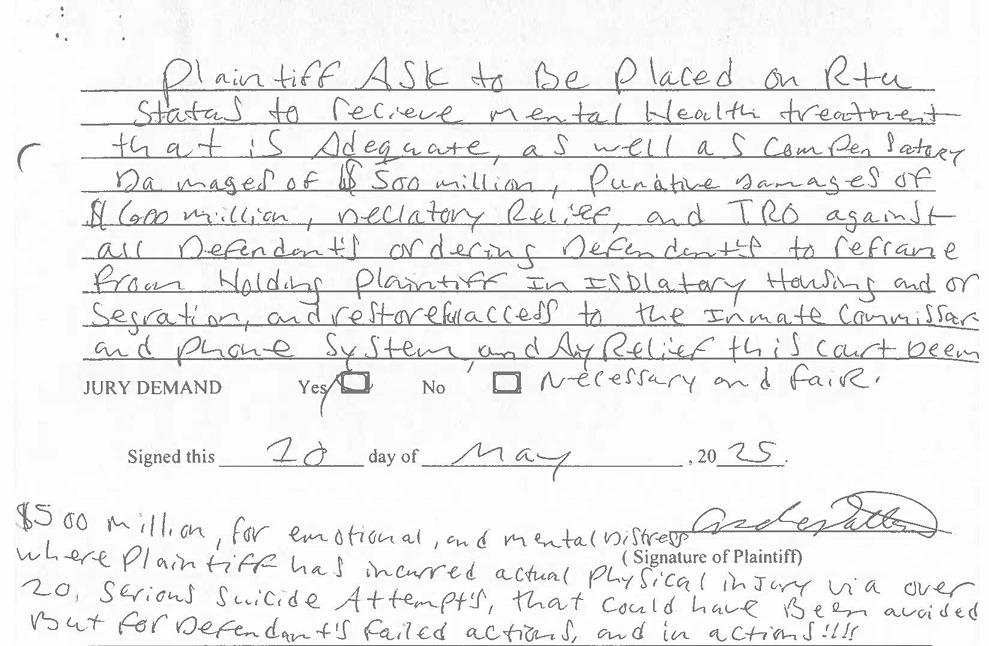 Plaintiff ASK to Be Placed on Rtu
Status to recieve mental Health treatment
that is Adequate, as well as Compensatory
Damages of $500 million, Punative Damages of
$600 million, Declatory Relief, and TRO against
all Defendant's ordering Defendant's to reframe
from Holding Plaintiff In ISOlatory Housing and or
Segration, and restore full access to the Inmate Commissar
and phone System, and Any Relief this court Deem
JURY DEMAND Yes No Necessary and fair.
Signed this 20 day of May , 20 25.
$500 million, for emotional, and mental Distress
(Signature of Plaintiff)
where Plaintiff has incurred actual Physical injury via over
20, Serious Suicide Attempt's, that could have Been avoided
But for Defendant's failed actions, and in actions!!!!